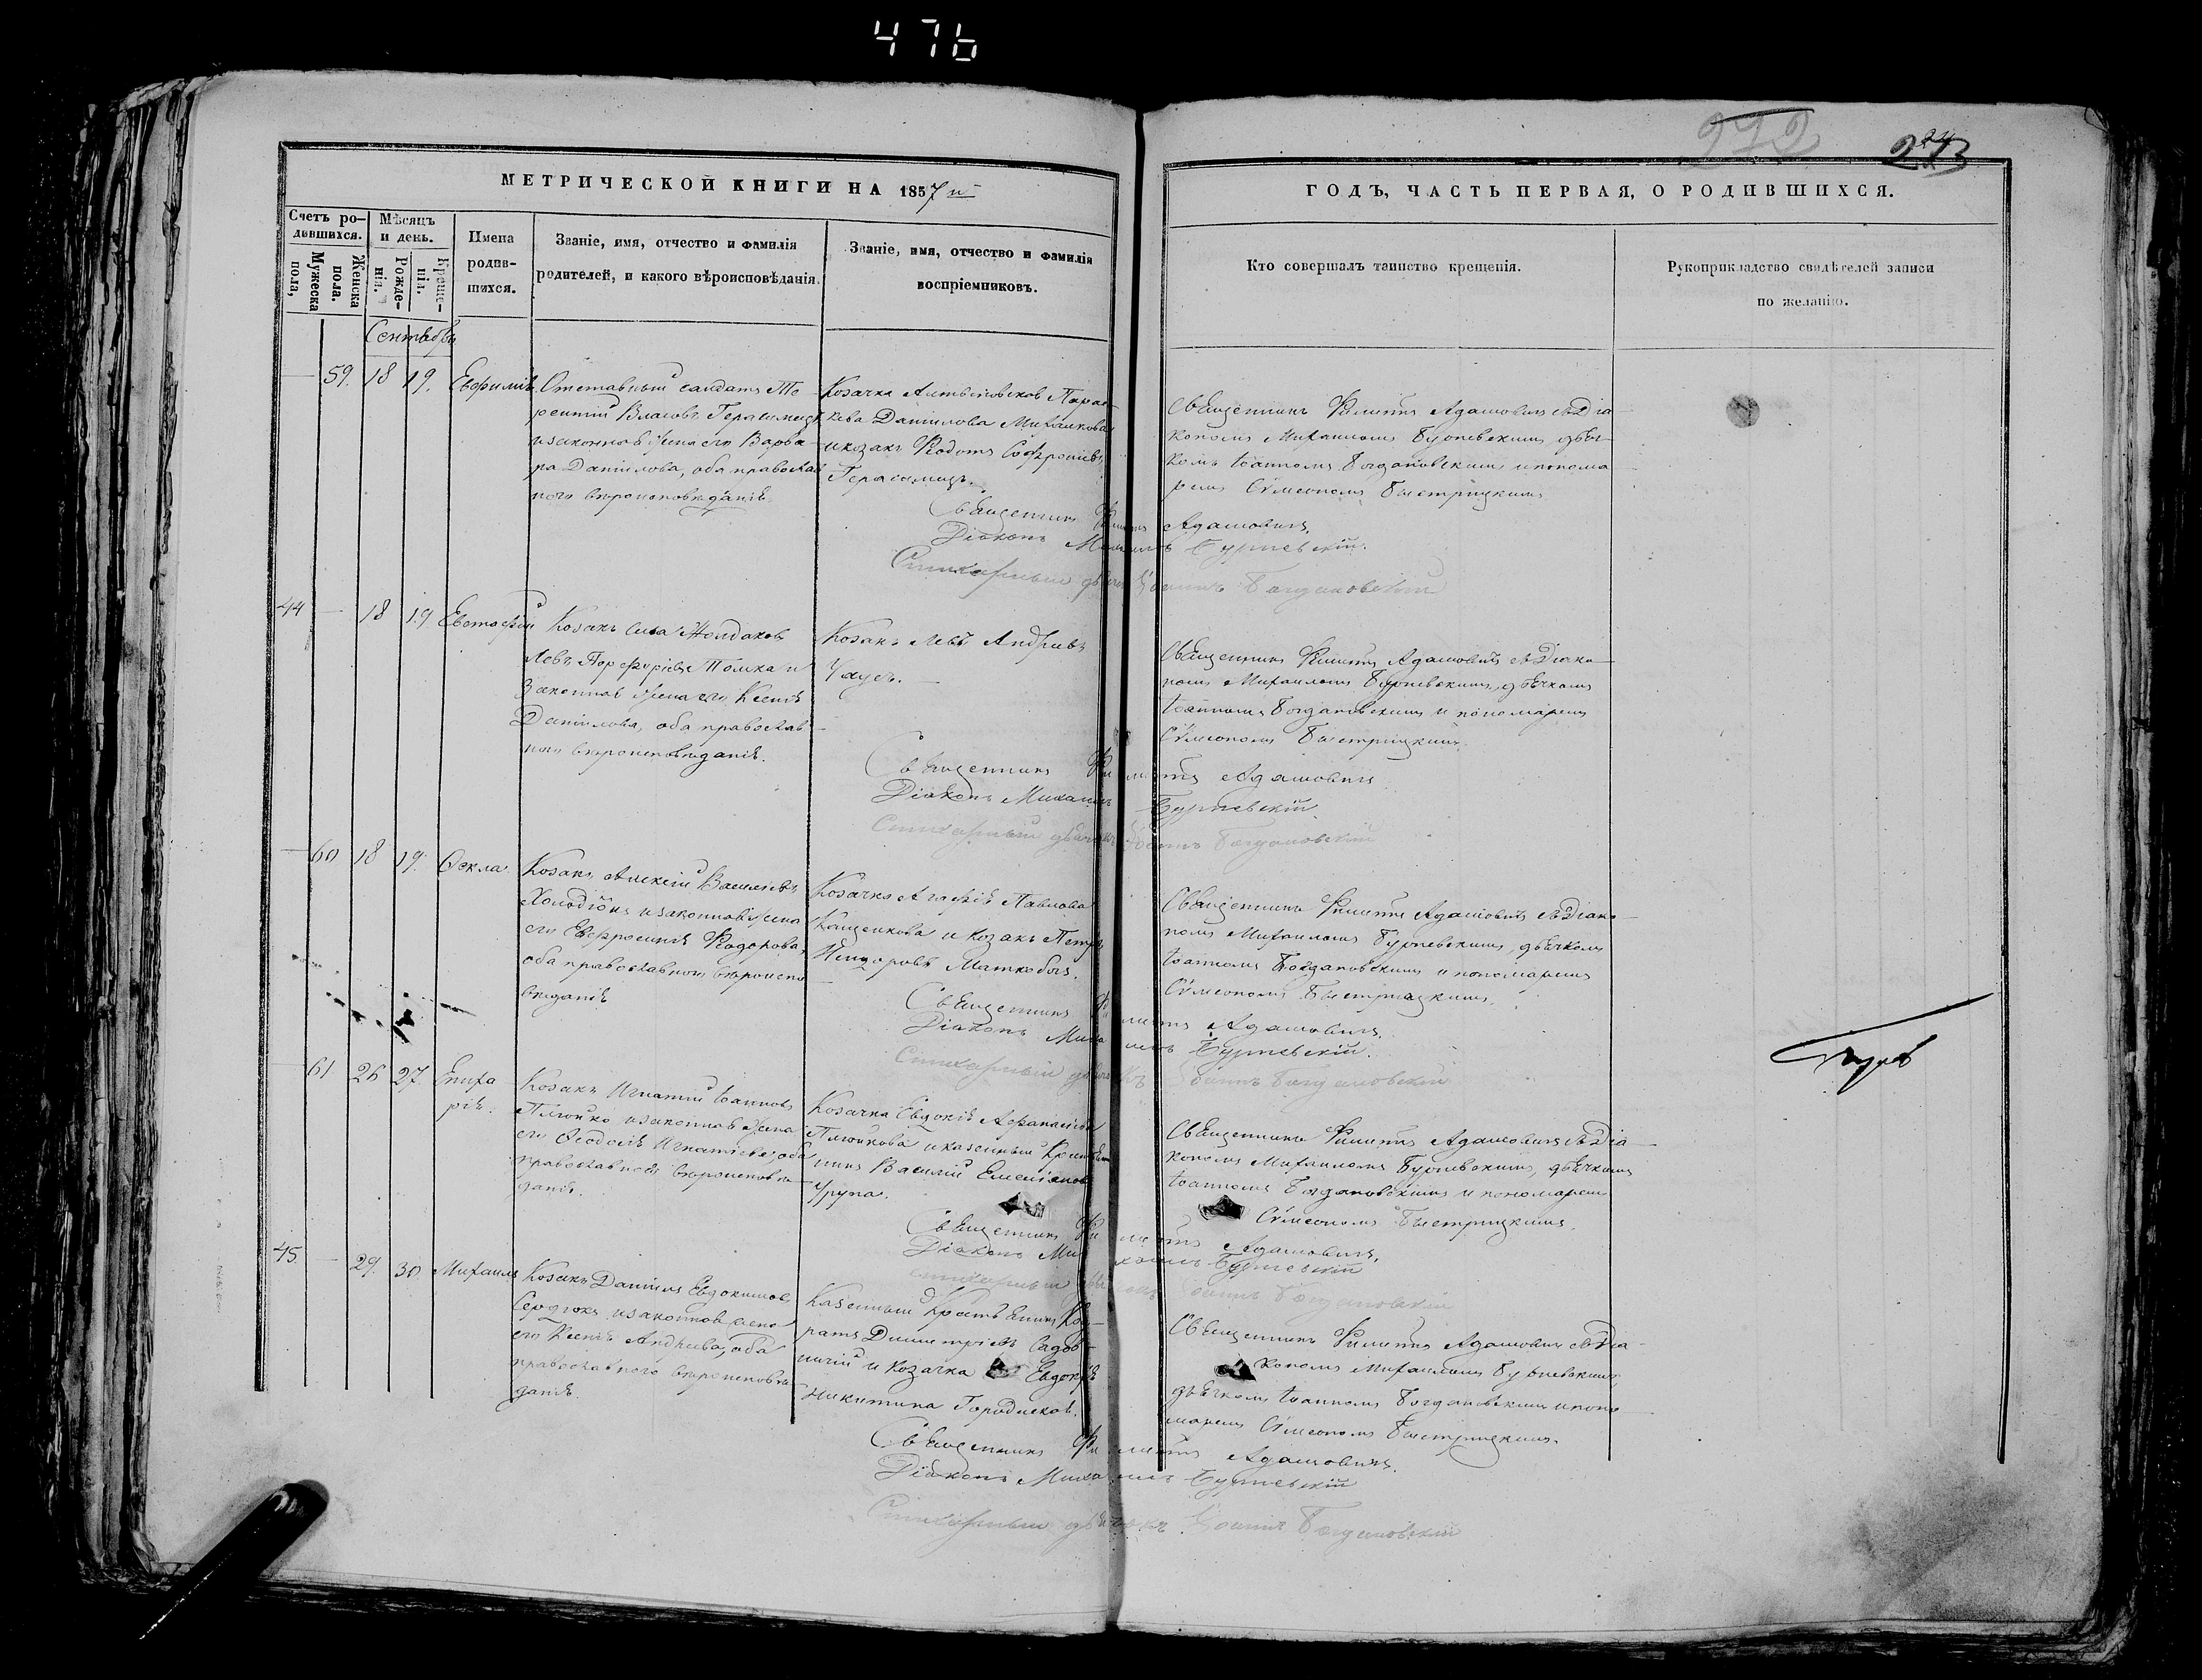 476
272
273
МЕТРИЧЕСКОЙ КНИГИ НА 1857 й
ГОДЪ, ЧАСТЬ ПЕРВАЯ, О РОДИВШИХСЯ.
Счетъ ро-
дившихся.
Мужеска
пола,
Женска
пола.
Мѣсяцъ
и день.
Рожде-
нія.
Креще-
нія.
Имена
родив-
шихся.
Званіе, имя, отчество и фамилія
родителей, и какого вѣроисповѣданія.
Званіе, имя, отчество и фамилія
воспріемниковъ.
Кто совершалъ таинство крещенія.
Рукоприкладство свидѣтелей записи
по желанію.
Сентябрь
59. 18 19. Евфимія
Отставный салдатъ Те-
рентій Власовъ Герасимецъ
и законная жена его Варва-
ра Даніилова, оба православ
наго вѣроисповѣданія
Козачка Парас-
кева Даніилова Михайлова
и козакъ Ѳедотъ Софроніевъ
Герасимецъ.
Священникъ Филиппъ Адамовичъ съ Діа-
кономъ Михаиломъ Бурневскимъ, дьяч-
комъ Іоанномъ Богдановскимъ и понома
ремъ Сѵмеономъ Быстрицкимъ
Священникъ Филиппъ Адамовичъ.
Діаконъ Михаилъ Бурневскій.
Стихарный дьячекъ Іоаннъ Богдановскій
44 — 18 19 Евстафій
Козакъ села Жолдаковъ
Левъ Порфиріевъ Томка и
Законная жена его Ксенія
Даніилова, оба православ
наго вѣроисповѣданія.
Козакъ Левъ Андріевъ
Ухусъ.
Священникъ Филиппъ Адамовичъ съ Діако
номъ Михаиломъ Бурневскимъ, дьячкомъ
Іоанномъ Богдановскимъ и пономаремъ
Сѵмеономъ Быстрицкимъ.
Священникъ Филиппъ Адамовичъ
Діаконъ Михаилъ Бурневскій
Стихарный дьячекъ Іоаннъ Богдановскій
— 60 18 19. Ѳекла
Козакъ Алексій Василіевъ
Холодіонъ и законная жена
его Евфросинія Ѳедорова,
оба православнаго вѣроиспо
вѣданія
Козачка Агафія Павлова
Кащенкова и козакъ Петръ
Священникъ Филиппъ Адамовичъ съ Діако
номъ Михаиломъ Бурневскимъ, дьячкомъ
Іоанномъ Богдановскимъ и пономаремъ
Сѵмеономъ Быстрицкимъ.
Священникъ Филиппъ Адамовичъ.
Діаконъ Михаилъ Бурневскій.
Стихарный дьячекъ Іоаннъ Богдановскій
61 26 27. Епиха
рія.
Козакъ Игнатій Іоанновъ
Плюйко и законная жена
его Ѳеодосія Игнатіева, оба
православной вѣроисповѣ
данія.
Козачка Евдокія Афанасіева
Плюйкова и казенный Крестья
нинъ Василій Емеліановъ
Урупа.
Священникъ Филиппъ Адамовичъ съ Діа
кономъ Михаиломъ Бурневскимъ, дьячкомъ
Іоанномъ Богдановскимъ и пономаремъ
Сѵмеономъ Быстрицкимъ.
Священникъ Филиппъ Адамовичъ.
Діаконъ Михаилъ Бурневскій
Стихарный дьячекъ Іоаннъ Богдановскій
45. — 29. 30 Михаилъ
Козакъ Даніилъ Евдокимовъ
Сердюкъ и законная жена
его Ксенія Андріева, оба
православнаго вѣроисповѣ
данія.
Казенный Крестьянинъ Код-
ратъ Димитріевъ Садов-
ничій и козачка Евдокія
Никитина Городиская.
Священникъ Филиппъ Адамовичъ съ Діа
кономъ Михаиломъ Бурневскимъ
дьячкомъ Іоанномъ Богдановскимъ и поно
маремъ Сѵмеономъ Быстрицкимъ.
Священникъ Филиппъ Адамовичъ.
Діаконъ Михаилъ Бурневскій
Стихарный дьячекъ Іоаннъ Богдановскій